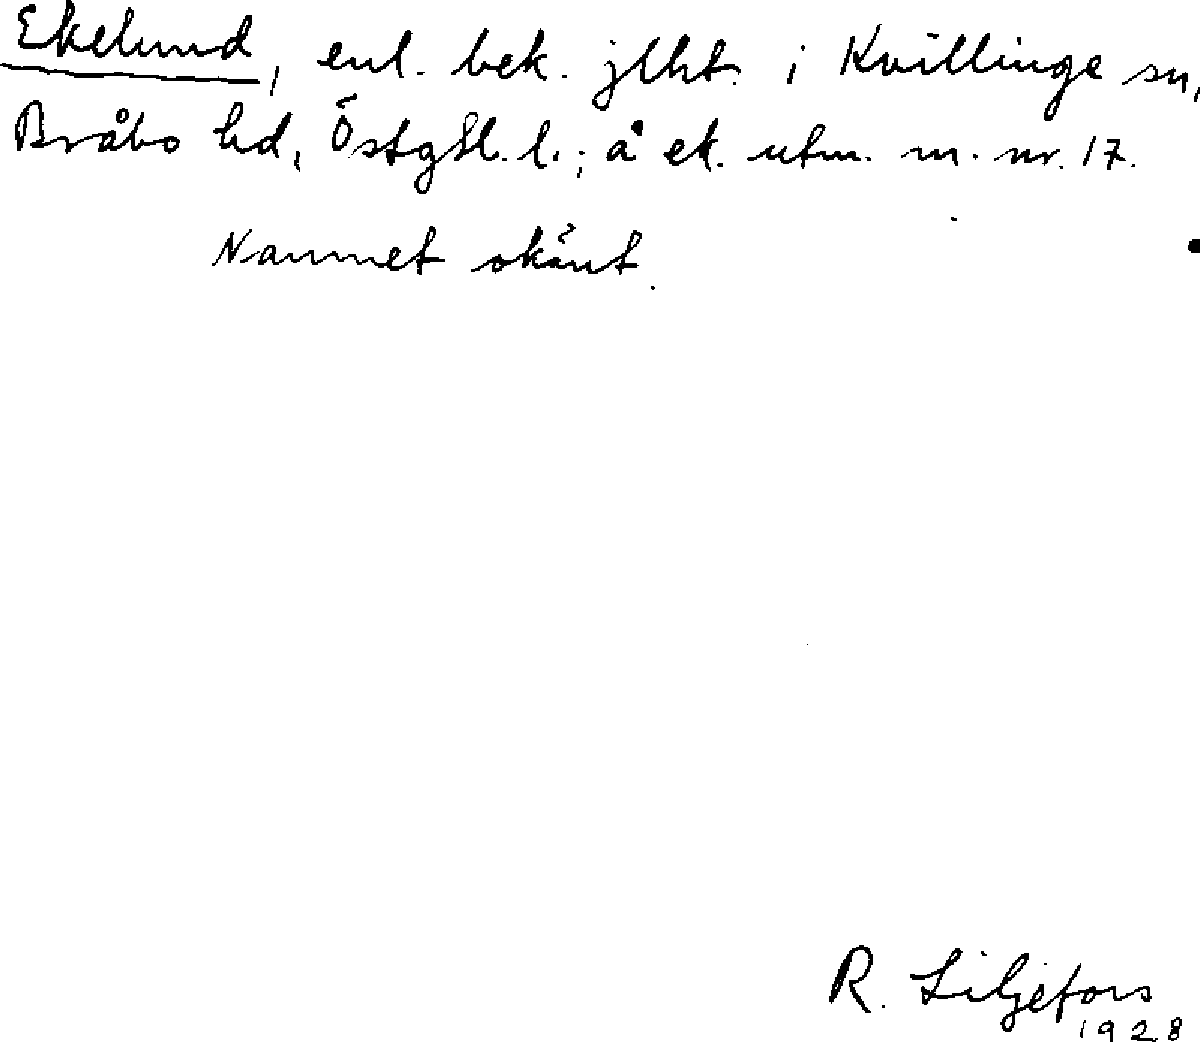 Ekelund, enl. bek. jlht. i Kvillinge sn,
Bråbo hd, Östgtl. l.; å ek. utm. m. nr. 17.
Namnet okänt.
R. Liljefors
1928